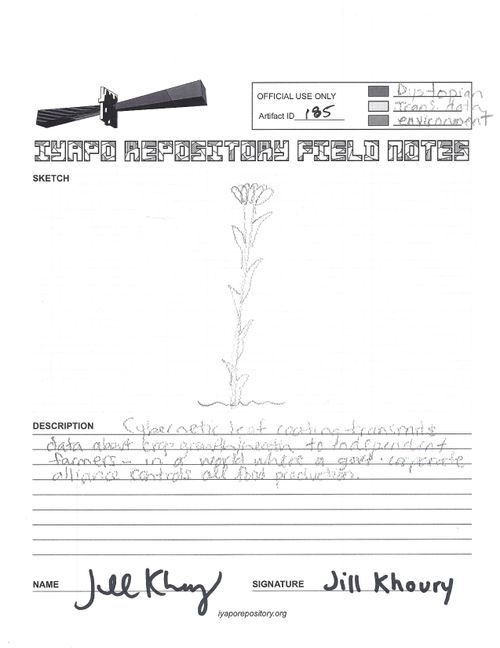 OFFICIAL USE ONLY
Artifact ID 185
Dystopian
trans. data
environment
IYAPO REPOSITORY FIELD NOTES
SKETCH
DESCRIPTION Cybernetic leaf coating transmits
data about crop growth to Independent
farmers - in a world where a govt. corporate
alliance controls all food production.
NAME Jill Khoury SIGNATURE Jill Khoury
iyaporepository.org